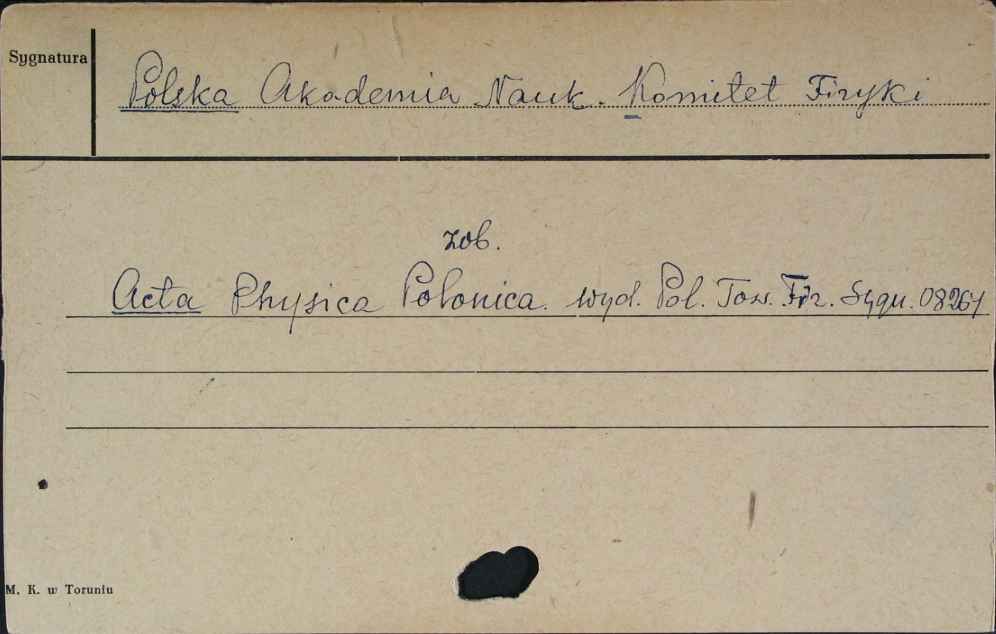 Sygnatura
Polska Akademia Nauk. Komitet Fizyki
zob.
Acta Physica Polonica. wyd. Pol. Tow. Fiz. Sygn. 08261
M. K. w Toruniu